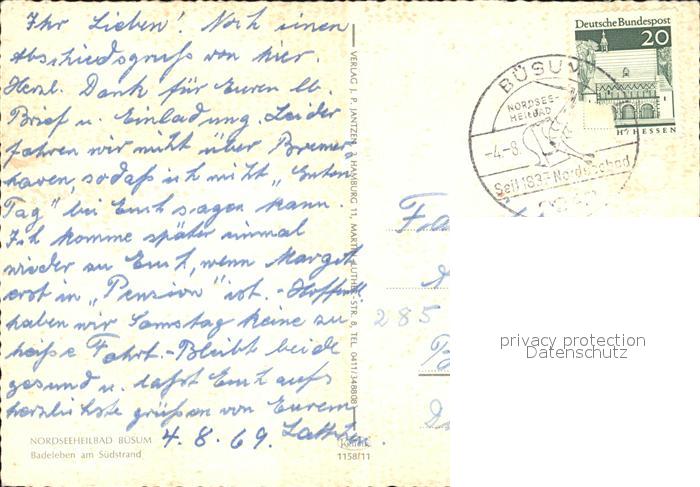 Ihr Lieben! Noch einen
Abschiedsgruß von hier.
Herzl. Dank für Euren lb.
Brief u. Einladung. Leider
fahren wir nicht über Bremer-
haven, sodaß ich nicht „Guten
Tag" bei Euch sagen kann.
Ich komme später einmal
wieder zu Euch, wenn Margot
erst in „Pension" ist. - Hoffentl.
haben wir Samstag keine zu
heiße Fahrt. - Bleibt beide
gesund u. laßt Euch aufs
herzlichste grüßen von Eurem
4.8.69.
NORDSEEHEILBAD BÜSUM
Badeleben am Südstrand
1158/11
VERLAG J. P. JANTZEN, 2 HAMBURG 11, MARTIN-LUTHER-STR. 8, TEL. 0411/348808
Deutsche Bundespost
20
HESSEN
BÜSUM
NORDSEE-
HEILBAD
-4.-8.
Seit 1837 Nordseebad
285
privacy protection
Datenschutz